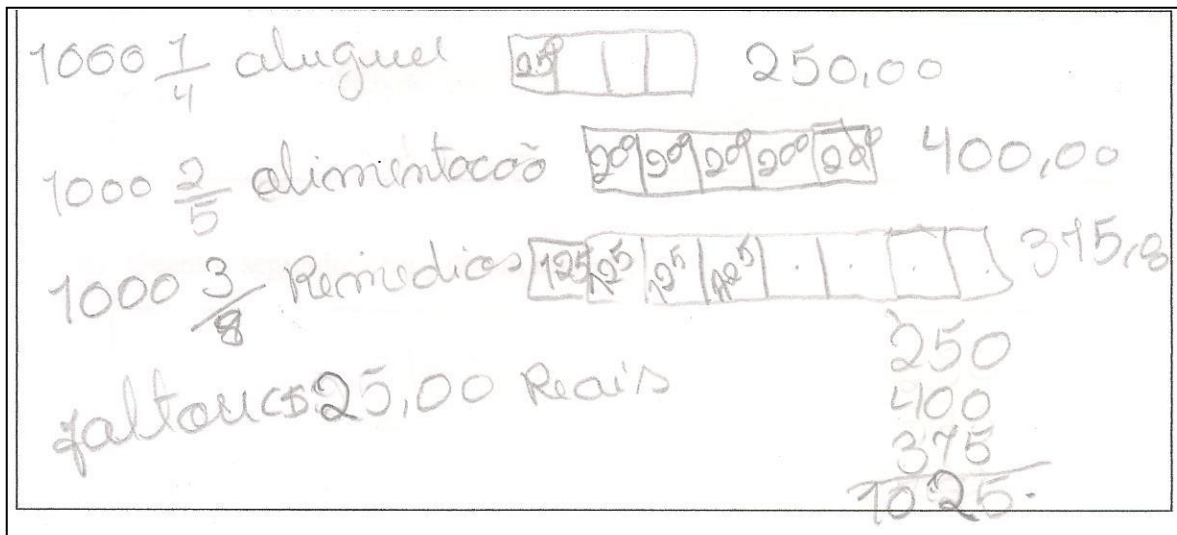 1000 1/4 aluguel 250 250,00
1000 2/5 alimentacoõ 200 200 200 200 200 400,00
1000 3/8 Remedios 125 125 125 125 375,
250
400
faltou 25,00 Reais
375
1025.